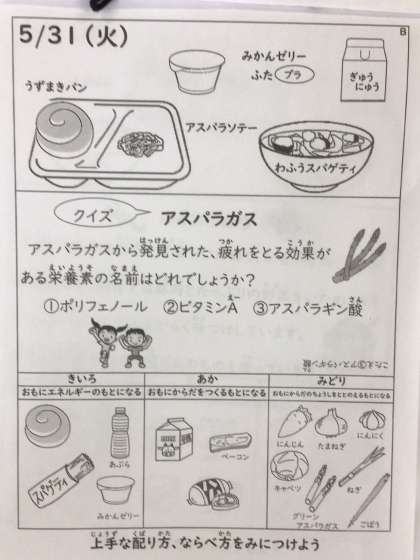 5/31(火)
B
みかんゼリー
ふた プラ
ぎゅう
にゅう
うずまきパン
アスパラソテー
わふうスパゲティ
クイズ
アスパラガス
アスパラガスから発見された、疲れをとる効果が
ある栄養素の名前はどれでしょうか?
①ポリフェノール ②ビタミンA ③アスパラギン酸
こたえ③アスパラギン酸
きいろ
あか
みどり
おもにエネルギーのもとになる
おもにからだをつくるもとになる
おもにからだのちょうしをととのえるもとになる
あぶら
スパゲティ
みかんゼリー
ベーコン
にんじん
たまねぎ
にんにく
キャベツ
グリーン
アスパラガス
ねぎ
ごぼう
上手な配り方、ならべ方をみにつけよう